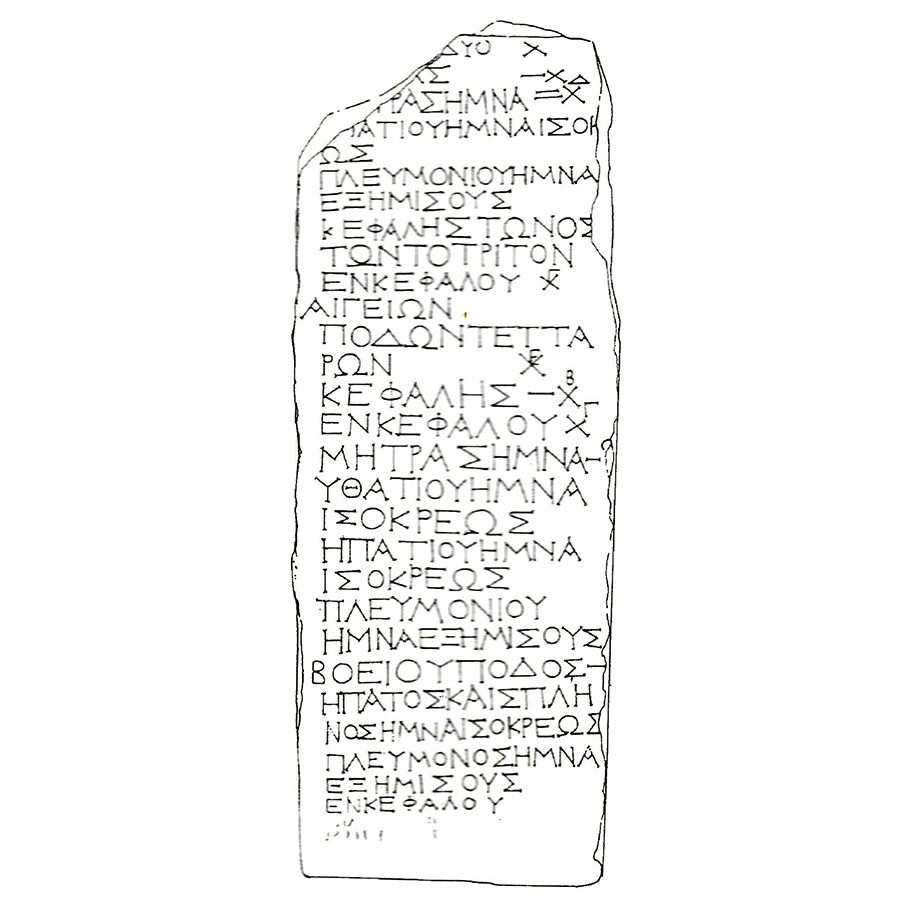 ΔΥΟ Χ
Σ —Χ Δ
ΤΡΑΣΗΜΝΑ =Χ
ΠΑΤΙΟΥΗΜΝΑΙΣΟΚ
ΩΣ
ΠΛΕΥΜΟΝΙΟΥΗΜΝΑ
ΕΞΗΜΙΣΟΥΣ
ΚΕΦΑΛΗΣΤΩΝΟΣ
ΤΩΝΤΟΤΡΙΤΟΝ
ΕΝΚΕΦΑΛΟΥ Χ
ΑΙΓΕΙΩΝ
ΠΟΔΩΝΤΕΤΤΑ
ΡΩΝ Χ Ε
ΚΕΦΑΛΗΣ —Χ Β
ΕΝΚΕΦΑΛΟΥ Χ Γ
ΜΗΤΡΑΣΗΜΝΑ
ΥΘΑΤΙΟΥΗΜΝΑ
ΙΣΟΚΡΕΩΣ
ΗΠΑΤΙΟΥΗΜΝΑ
ΙΣΟΚΡΕΩΣ
ΠΛΕΥΜΟΝΙΟΥ
ΗΜΝΑΕΞΗΜΙΣΟΥΣ
ΒΟΕΙΟΥΠΟΔΟΣ
ΗΠΑΤΟΣΚΑΙΣΠΛΗ
ΝΟΣΗΜΝΑΙΣΟΚΡΕΩΣ
ΠΛΕΥΜΟΝΟΣΗΜΝΑ
ΕΞΗΜΙΣΟΥΣ
ΕΝΚΕΦΑΛΟΥ